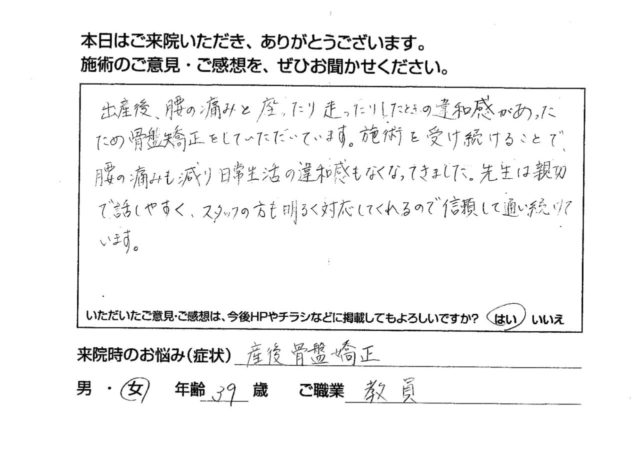 本日はご来院いただき、ありがとうございます。
施術のご意見・ご感想を、ぜひお聞かせください。
出産後、腰の痛みと座ったり走ったりしたときの違和感があった
ため骨盤矯正をしていただいています。施術を受け続けることで、
腰の痛みも減り日常生活の違和感もなくなってきました。先生は親切
で話しやすく、スタッフの方も明るく対応してくれるので信頼して通い続けて
います。
いただいたご意見・ご感想は、今後HPやチラシなどに掲載してもよろしいですか? はい いいえ
来院時のお悩み(症状) 産後骨盤矯正
男 ・ 女 年齢 39 歳 ご職業 教員